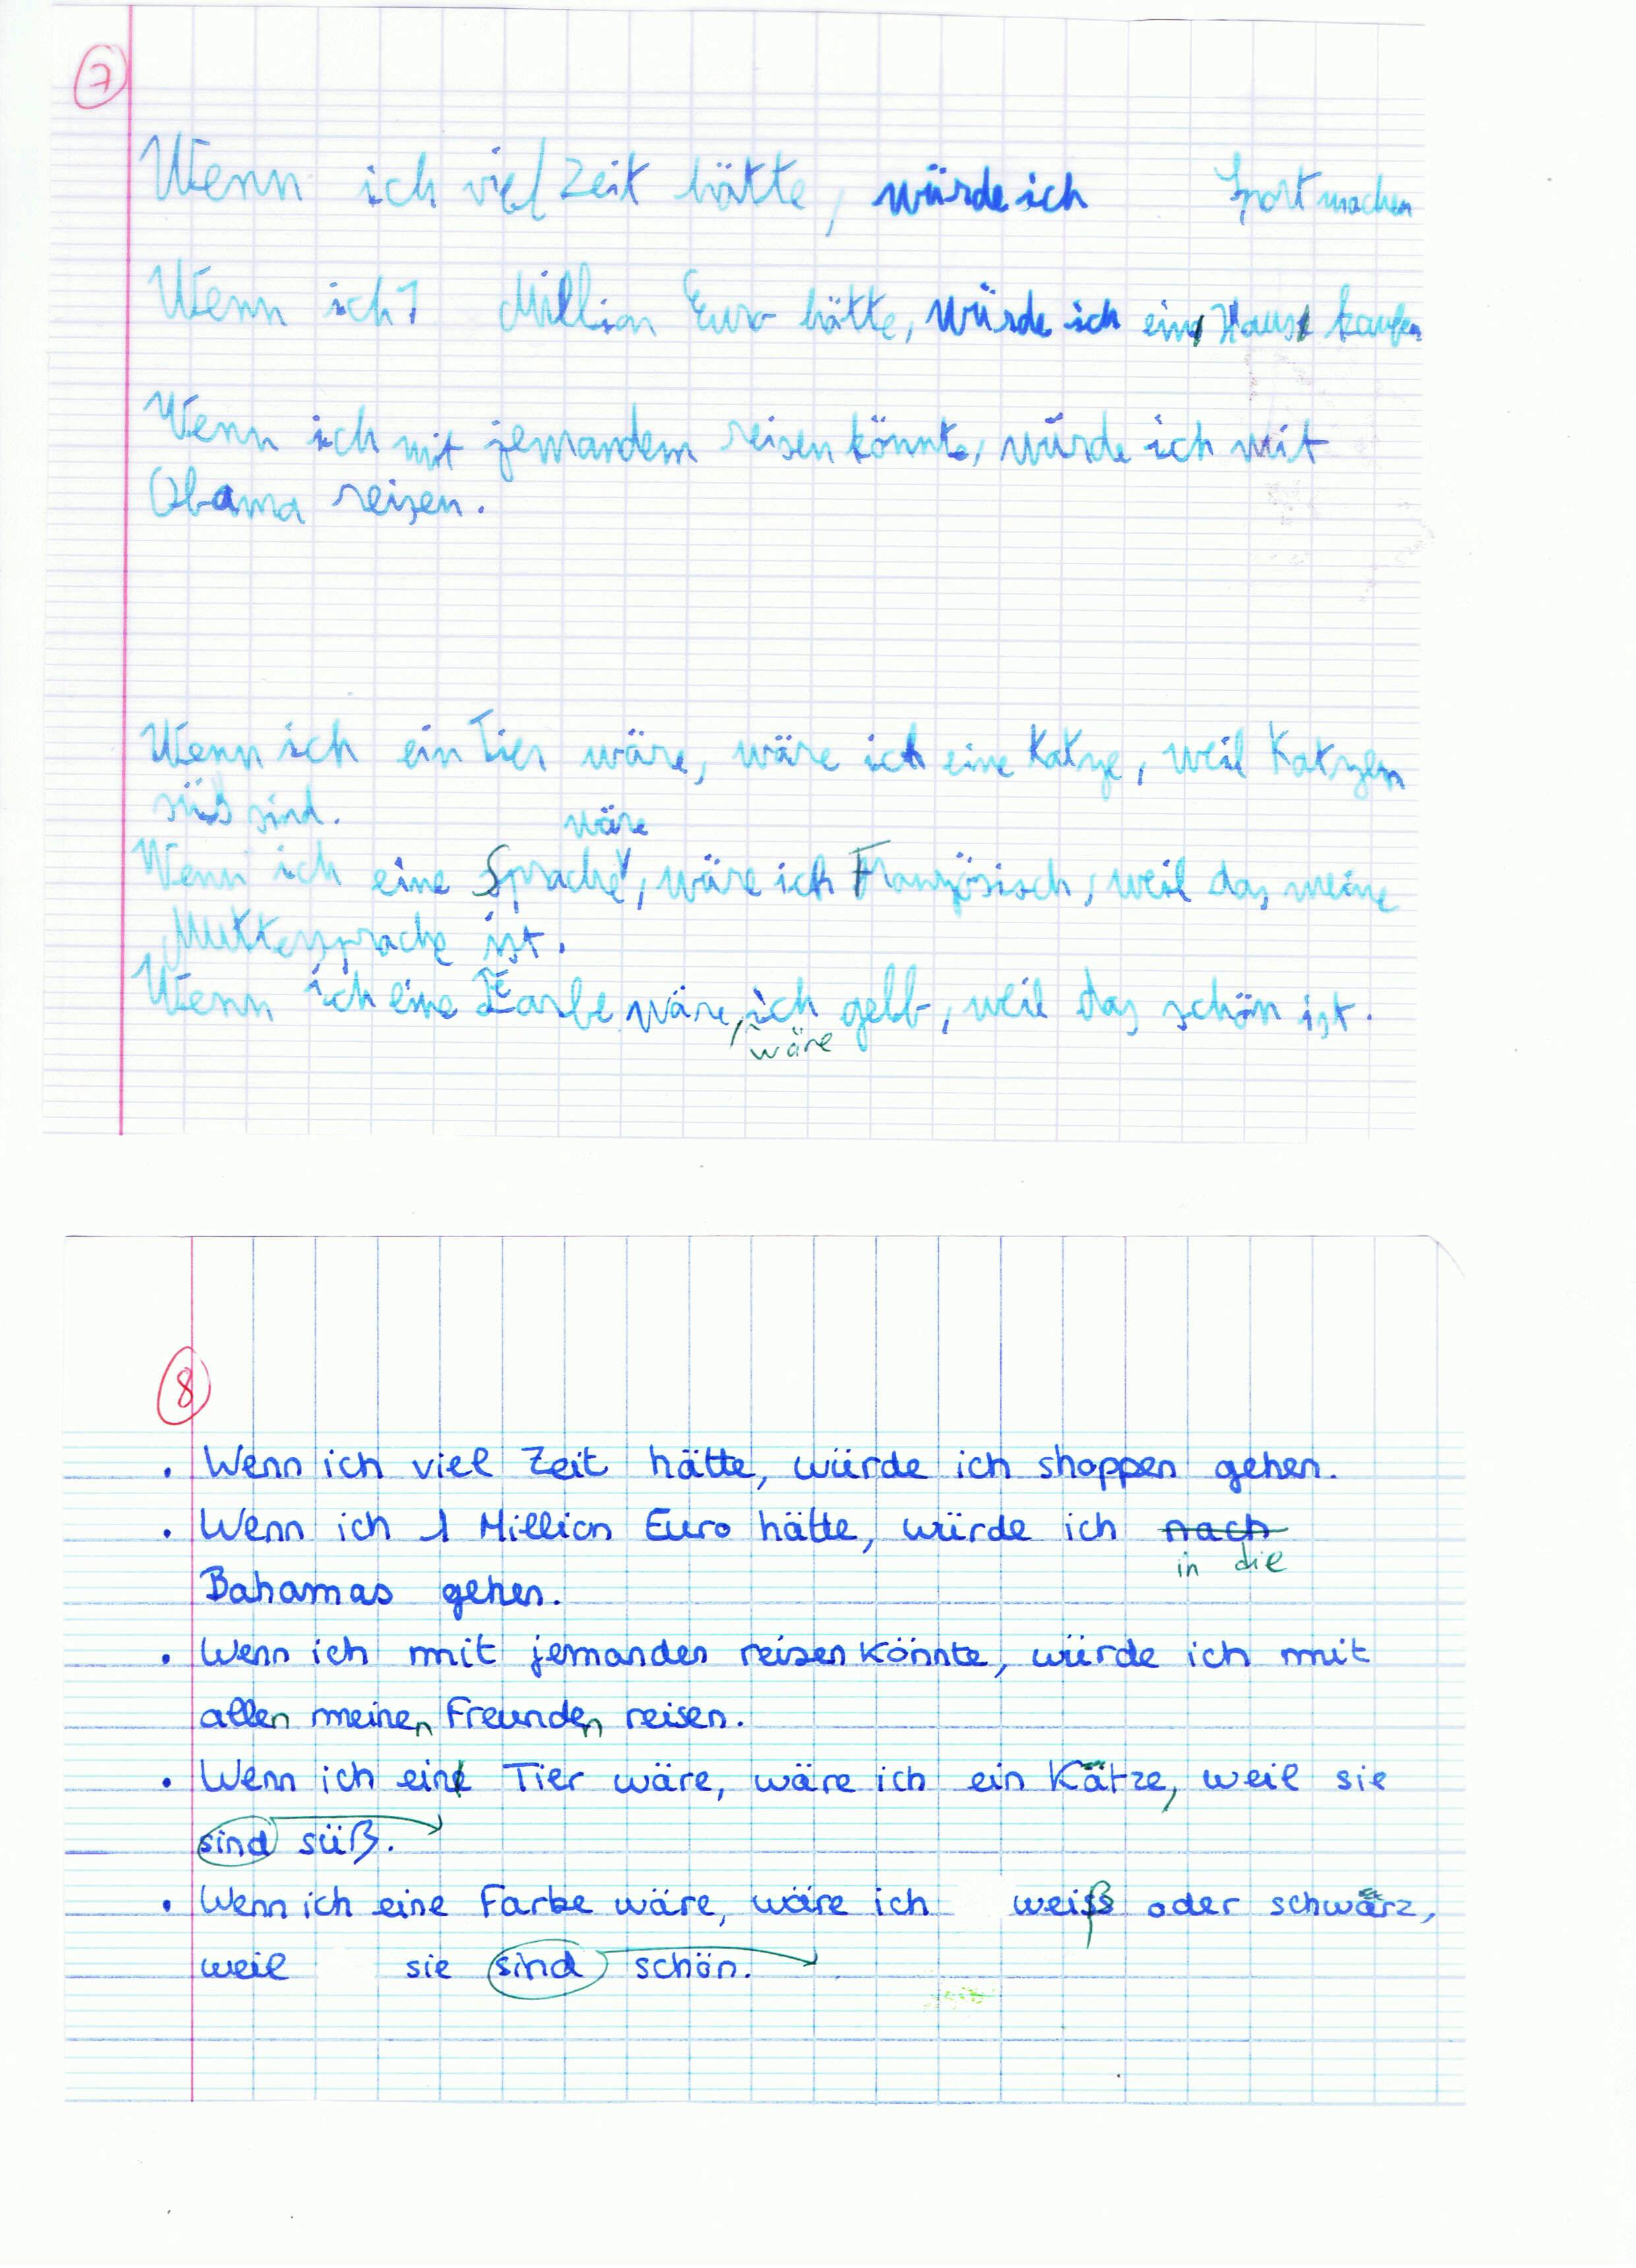 7
Wenn ich viel Zeit hätte, würde ich Sport machen
Wenn ich 1 Million Euro hätte, würde ich ein Haus kaufen
Wenn ich mit jemandem reisen könnte, würde ich mit
Obama reisen.
Wenn ich ein Tier wäre, wäre ich eine Katze, weil Katzen
süß sind.
wäre
Wenn ich eine Sprache, wäre ich Französisch, weil das meine
Muttersprache ist.
Wenn ich eine Farbe wäre, ich gelb, weil das schön ist.
wäre
8
. Wenn ich viel Zeit hätte, würde ich shoppen gehen.
. Wenn ich 1 Million Euro hätte, würde ich nach
in die
Bahamas gehen.
. Wenn ich mit jemanden reisen könnte, würde ich mit
allen meinen Freunden reisen.
. Wenn ich ein Tier wäre, wäre ich ein Kätze, weil sie
sind süß.
. Wenn ich eine Farbe wäre, wäre ich weiß oder schwärz,
weil sie sind schön.